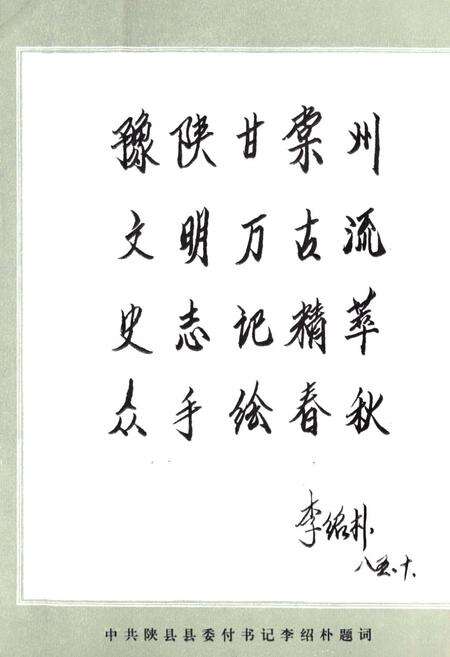 豫陕甘棠州
文明万古流
史志记精萃
众手绘春秋
李绍朴
八五.十.
中共陕县县委付书记李绍朴题词